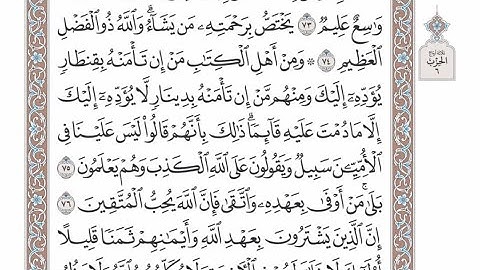 وَٰسِعٌ عَلِيمٌ ٧٣ يَخْتَصُّ بِرَحْمَتِهِۦ مَن يَشَآءُۗ وَٱللَّهُ ذُو ٱلْفَضْلِ
ٱلْعَظِيمِ ٧٤ ۞ وَمِنْ أَهْلِ ٱلْكِتَٰبِ مَنْ إِن تَأْمَنْهُ بِقِنطَارٍ
يُؤَدِّهِۦٓ إِلَيْكَ وَمِنْهُم مَّنْ إِن تَأْمَنْهُ بِدِينَارٍ لَّا يُؤَدِّهِۦٓ إِلَيْكَ
إِلَّا مَا دُمْتَ عَلَيْهِ قَآئِمًاۗ ذَٰلِكَ بِأَنَّهُمْ قَالُوا۟ لَيْسَ عَلَيْنَا فِى
ٱلْأُمِّيِّـۧنَ سَبِيلٌ وَيَقُولُونَ عَلَى ٱللَّهِ ٱلْكَذِبَ وَهُمْ يَعْلَمُونَ ٧٥
بَلَىٰۚ مَنْ أَوْفَىٰ بِعَهْدِهِۦ وَٱتَّقَىٰ فَإِنَّ ٱللَّهَ يُحِبُّ ٱلْمُتَّقِينَ ٧٦
إِنَّ ٱلَّذِينَ يَشْتَرُونَ بِعَهْدِ ٱللَّهِ وَأَيْمَٰنِهِمْ ثَمَنًا قَلِيلًا
ٱلْحِزْب
٦